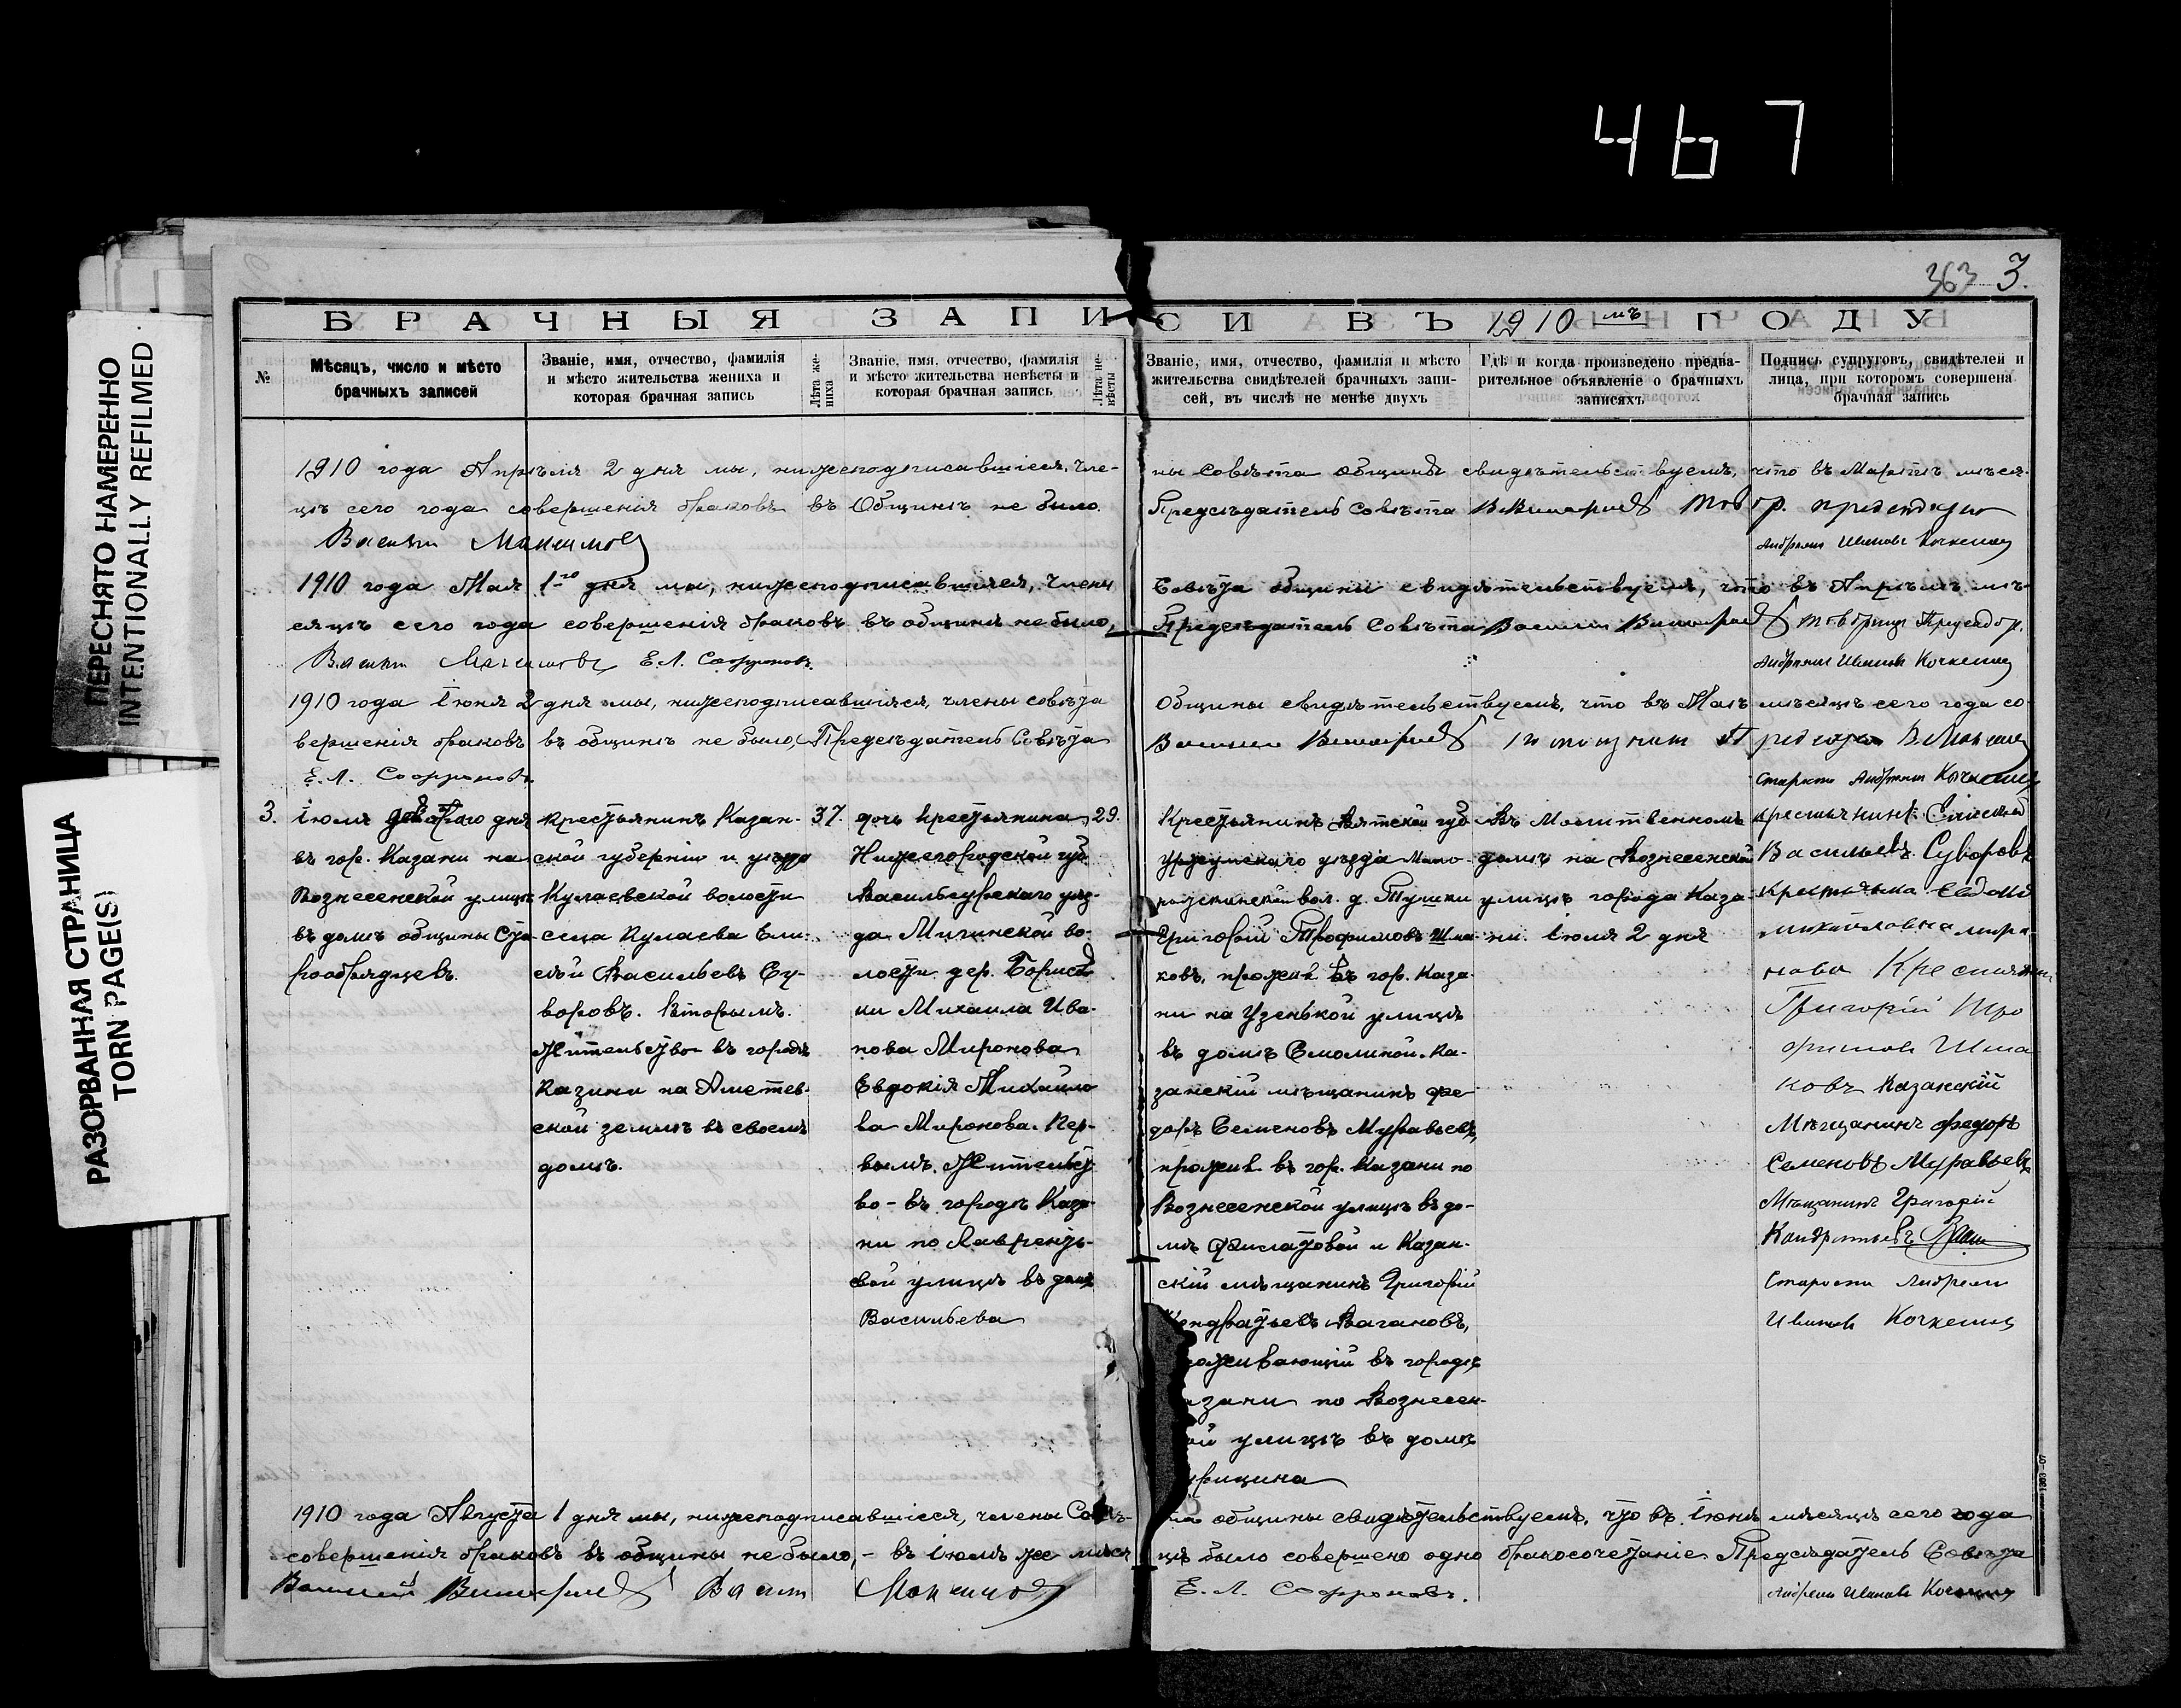 467
363 3.
ПЕРЕСНЯТО НАМЕРЕННО
INTENTIONALLY REFILMED
РАЗОРВАННАЯ СТРАНИЦА
TORN PAGE(S)
БРАЧНЫЯ ЗАПИСИ ВЪ 1910 мъ ГОДУ
№
Мѣсяцъ, число и мѣсто
брачныхъ записей
Званіе, имя, отчество, фамилія
и мѣсто жительства жениха и
которая брачная запись
Лѣта же-
ниха
Званіе, имя, отчество, фамилія
и мѣсто жительства невѣсты и
которая брачная запись
Лѣта не-
вѣсты
Званіе, имя, отчество, фамилія и мѣсто
жительства свидѣтелей брачныхъ запи-
сей, въ числѣ не менѣе двухъ
Гдѣ и когда произведено предва-
рительное объявленіе о брачныхъ
записяхъ
Подпись супруговъ, свидѣтелей и
лица, при которомъ совершена
брачная запись
1910 года Апрѣля 2 дня мы, нижеподписавшіеся, чле-
ны Совѣта общины свидѣтельствуемъ, что въ Мартѣ мѣся-
цѣ сего года совершенія браковъ въ Общинѣ не было.
Предсѣдатель Совѣта
Максимовъ
1910 года Мая 1-го дня мы, нижеподписавшіяся, Члены
Совѣта общины свидѣтельствуемъ, что въ Апрѣлѣ мѣ-
сяцѣ сего года совершенія браковъ въ общинѣ не было,
Предсѣдатель Совѣта
Е. Л. Софроновъ
1910 года Іюня 2 дня мы, нижеподписавшіяся, члены совѣта
Общины свидѣтельствуемъ, что въ Маѣ мѣсяцѣ сего года со-
вершенія браковъ въ общинѣ не было, Предсѣдатель Совѣта
Е. Л. Софроновъ
3.
Іюля дня
въ гор. Казани на
Вознесенской улицѣ
въ домѣ общины Ста-
рообрядцевъ.
крестьянинъ Казан-
ской губерніи и уѣзда
Кулаевской волости
села Кулаева
Васильевъ Су-
воровъ. Вторымъ.
Жительство въ городѣ
Казани на Аметев-
ской землѣ въ своемъ
домѣ.
37.
дочь крестьянина
Нижегородской губ.
Васильсурскаго уѣз-
да Мигинской во-
лости дер.
Михаила Ива-
нова Миронова
Евдокія Михайло-
ва Миронова. Пер-
вымъ. Жительст-
во - въ городѣ Каза-
ни по Лаврентье-
вой улицѣ въ домѣ
Васильева
29.
Крестьянинъ Вятской губ
Уржумскаго уѣзда
вол. д. Тушки
Григорій Трофимовъ Шма-
ковъ, прожив. въ гор. Каза-
ни на Узенькой улицѣ
въ домѣ Смолиной. Ка-
занскій мѣщанинъ Фе-
доръ Семеновъ Муравьевъ,
прожив. въ гор. Казани по
Вознесенской улицѣ въ до-
мѣ Филатовой и Казан-
скій мѣщанинъ Григорій
Кондратьевъ Вагановъ,
въ городѣ
по Вознесен-
улицѣ въ домѣ
Въ Молитвенномъ
домѣ на Вознесенской
улицѣ города Каза-
ни. Іюля 2 дня
крестьянинъ
Васильевъ Суворовъ
Григорій Тро
фимовъ Шма
ковъ Казанскій
Мѣщанинъ Федоръ
Семеновъ Муравьевъ
Мѣщанинъ Григорій
Староста Андреи
1910 года Августа 1 дня мы, нижеподписавшіеся, члены Совѣ-
та общины свидѣтельствуемъ, что въ Іюнѣ мѣсяцѣ сего года
совершенія браковъ въ общины не было, - въ Іюлѣ же мѣся
цѣ было совершено одно бракосочетаніе Предсѣдатель Совѣта
Е. Л. Софроновъ.